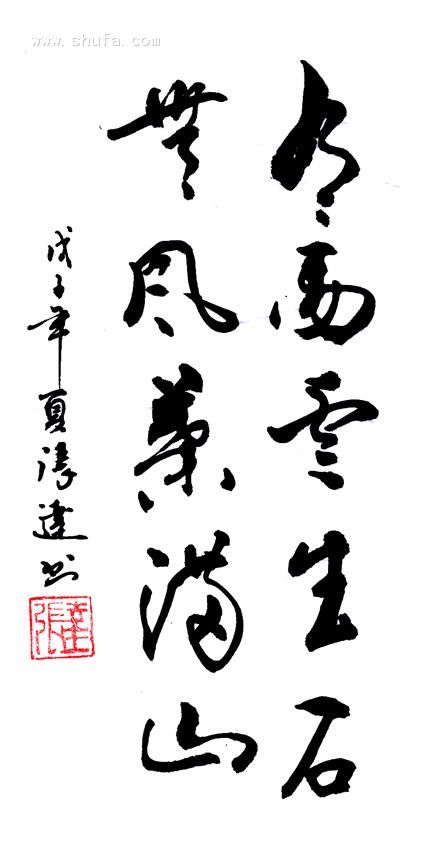 有雨雲生石
無風葉滿山
戊子年夏張達书
張達
www.shufa.com